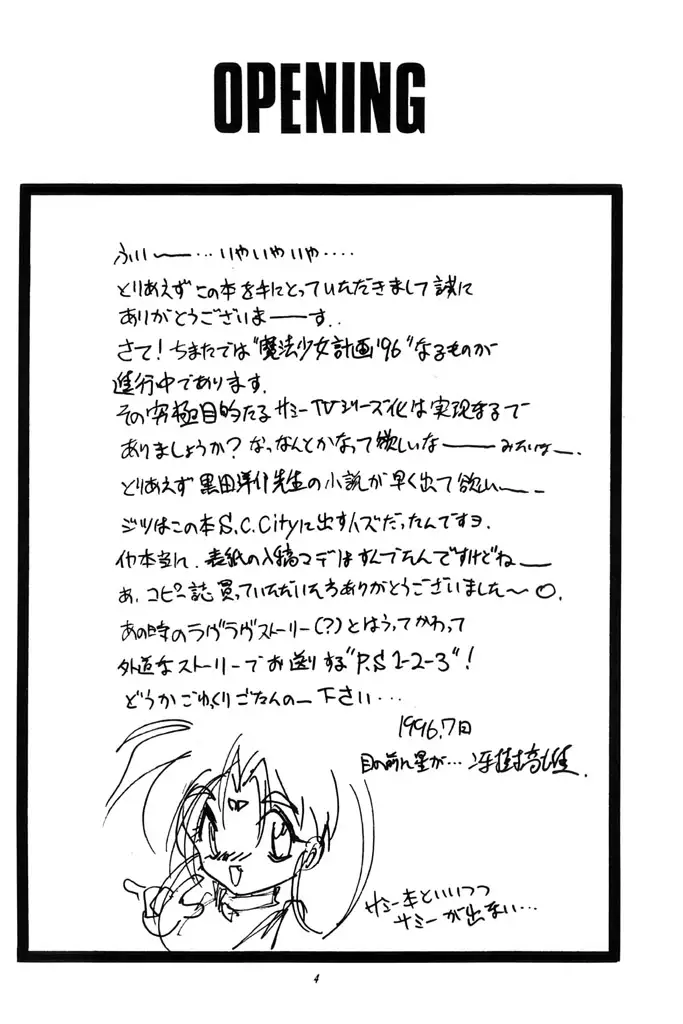 OPENING
ふいー…いやいやいや‥‥
とりあえずこの本を手にとっていただきまして誠に
ありがとうございまーーす..
さて！ちまたでは"魔法少女計画'96"なるものが
進行中であります.
その究極目的たるサミーTVシリーズ化は実現するで
ありましょうか？なっなんとかなって欲しいなーーみたいなー.
とりあえず黒田洋介先生の小説が早く出て欲しい～ー
ジツはこの本S.C.Cityに出すハズだったんですヨ.
イヤ本当に.表紙の入稿マデはすんでたんですけどねー
あ.コピー誌買っていただいた方ありがとうございました～○.
あの時のラヴラヴストーリー(?)とはうってかわって
外道なストーリーでお送りする"P.S 1-2-3"！
どうかごゆっくりごたんのー下さい…
1996.7日
目の前に星が…
サミー本といいつつ
サミーが出ない…
4